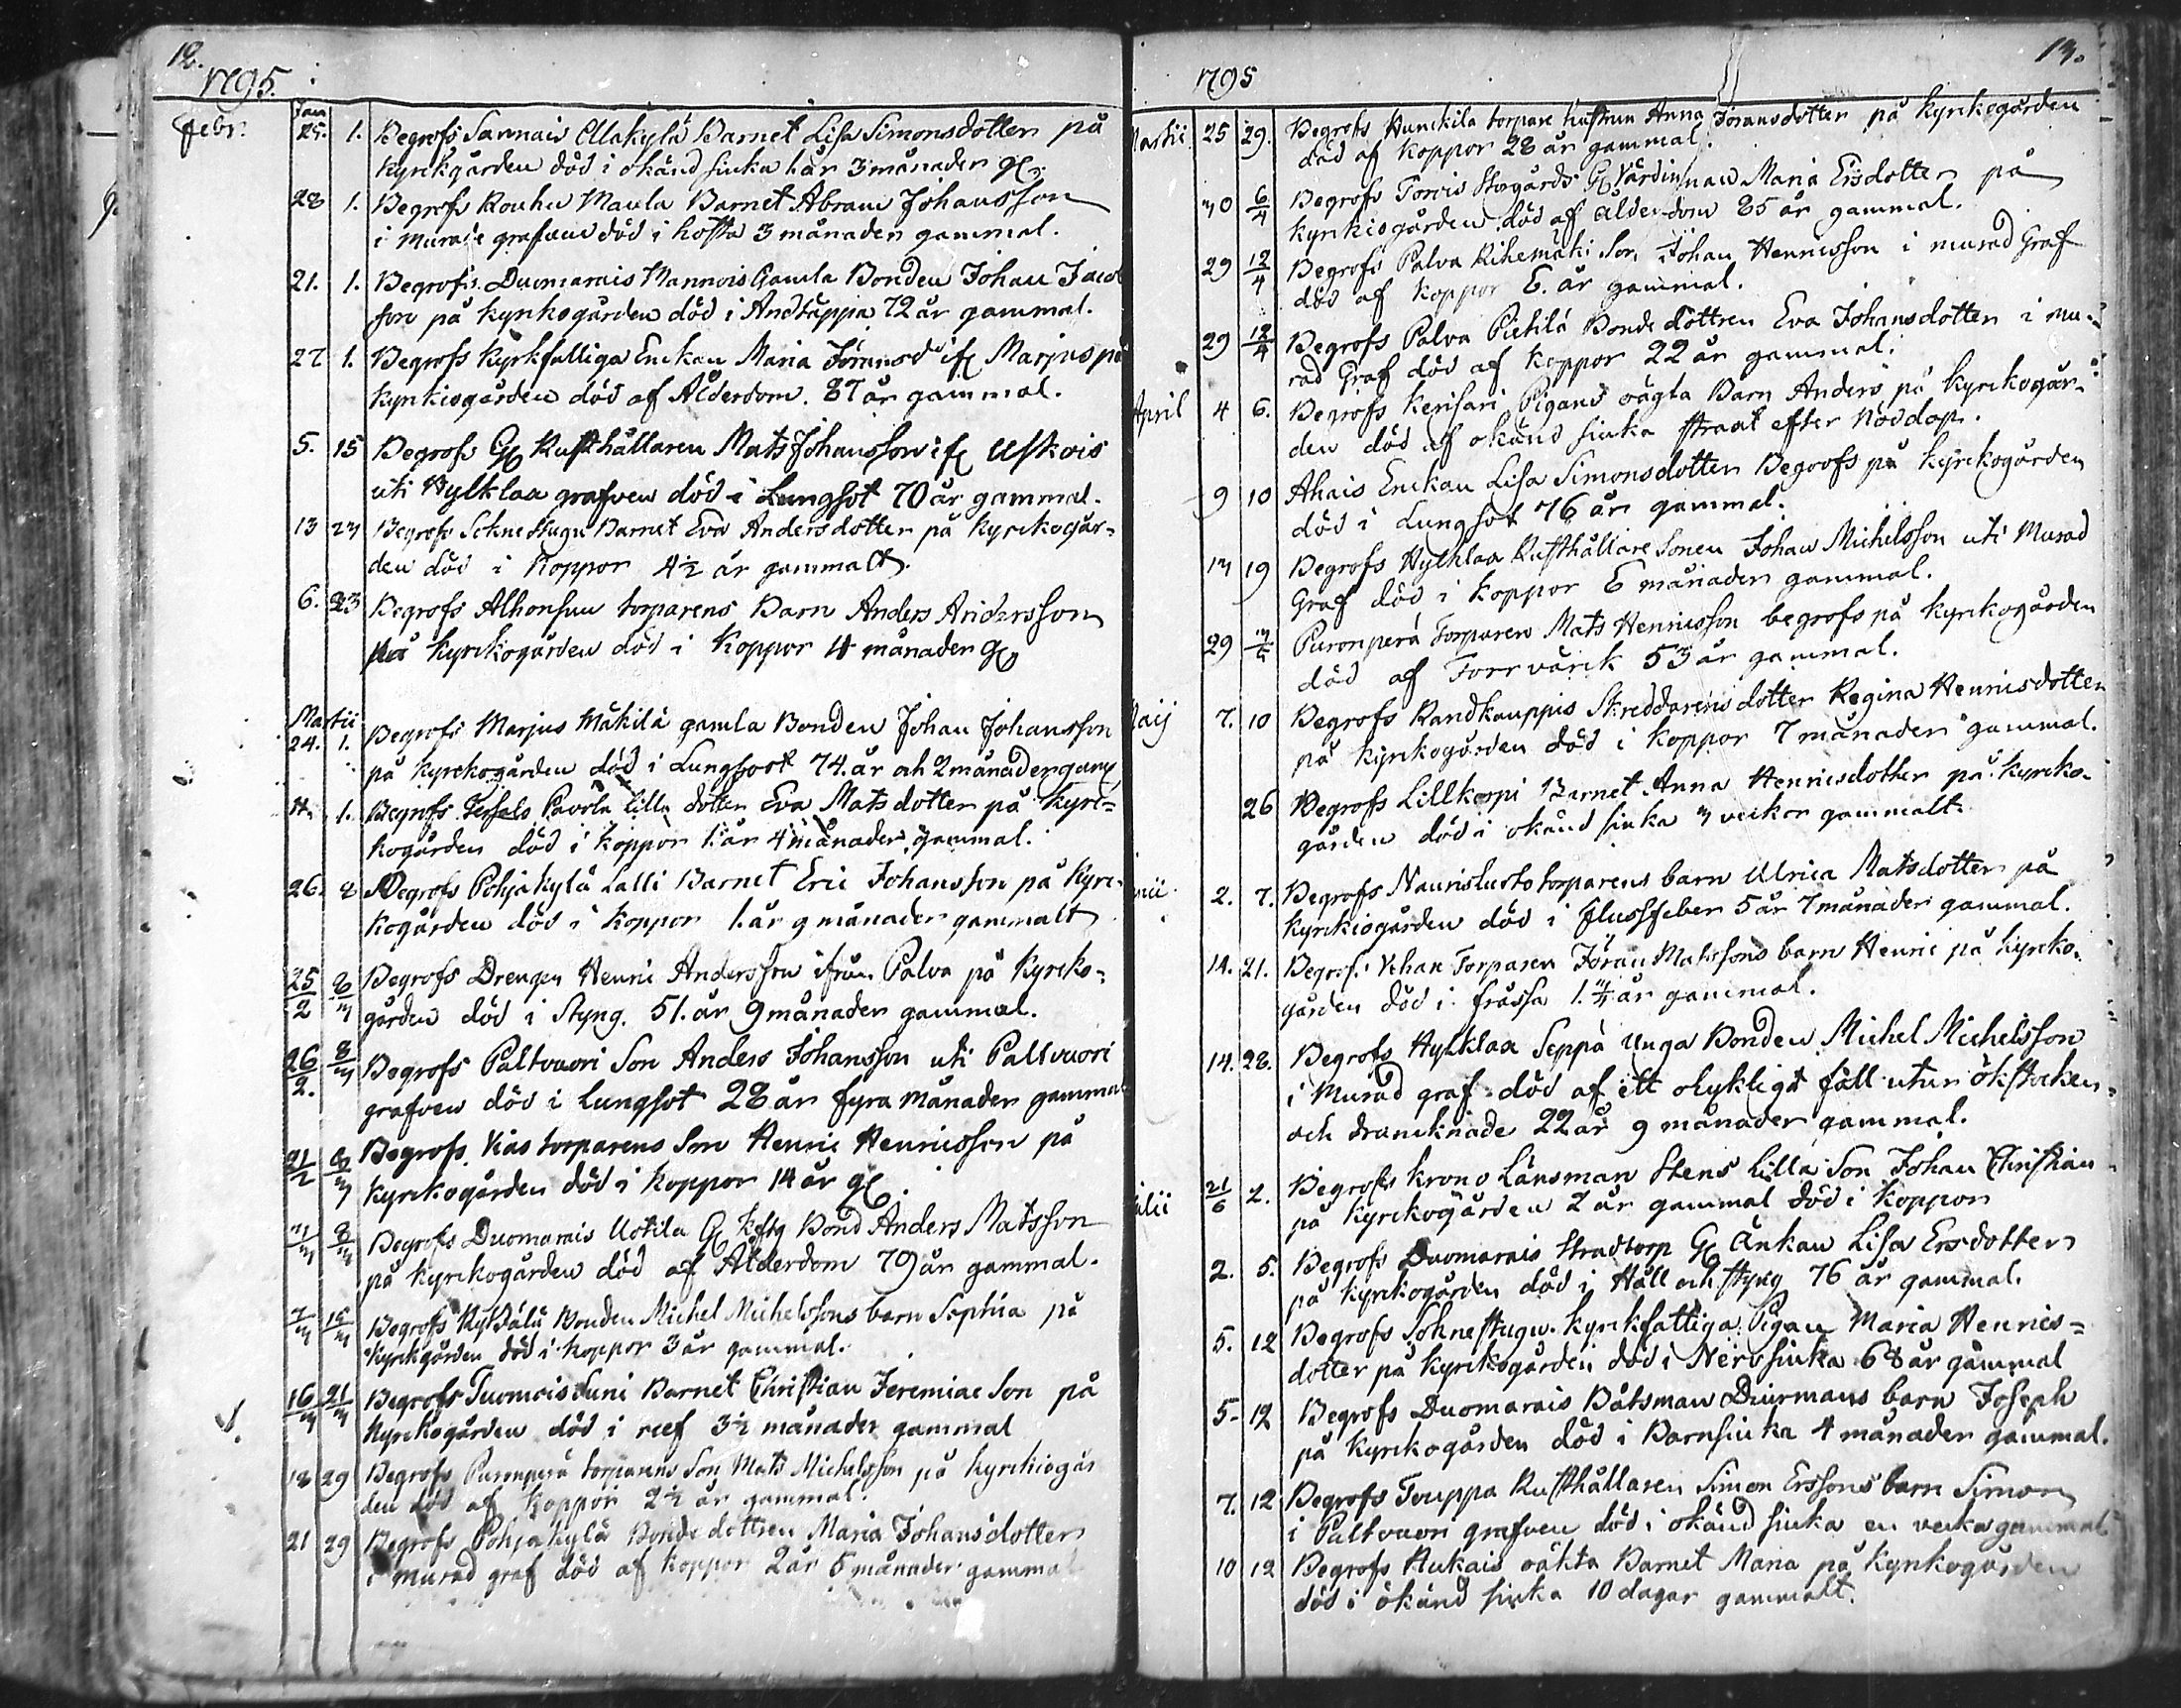 12.
1795.
Febr. Jan
25. 1. Begrofs Sannais Ellakylä Barnet Lisa Simonsdotter på
kyrkgården död i okänd siuka här 3 månader gl.
28 1. Begrofs Rouhu Maula Barnet Abram Johansson
i murade grafven död i hosta 3 månader gammal.
21. 1. Begrofs Duomarais Mannois Gamla Bonden Johan Jacob
son på kyrkogården död i Andtäppa 72 år gammal.
27 1. Begrofs kyrkfattiga Enckan Maria Jöransd if: Marjus på
kyrkiogården död af Ålderdom. 87 år gammal.
5. 15 Begrofs Gl Rusthållaren Mats Johansson if: Uskois
uti Hylklaa grafven död i Lungsot 70 år gammal.
13 23 Begrofs Sohnestugu Barnet Eva Andersdotter på kyrckogår-
den död i Koppor 4½ år gammalt.
6. 23 Begrofs Alhonsuu torparens Barn Anders Andersson
på kyrckogården död i Koppor 4 månader gl
Martii
24. 1. Begrofs Marjus Mäkilä gamla Bonden Johan Johansson
på kyrckogården död i Lungsoot 74. år och 2 månader gam
11. 1. Begrofs Pavola lilla dotter Eva Matsdotter på kyrc-
kogården död i koppor 1. år 4 månader gammal.
26. 8 Begrofs Pohjakylä Lalli Barnet Eric Johansson på kyrc-
kogården död i koppor 1. år 9 månader gammalt
25/2 8/3 Begrofs Drengen Henric Andersson ifrån Palva på kyrcko-
gården död i Styng. 51. år 9 månader gammal.
26/2. 8/3 Begrofs Paltvuori Son Anders Johansson uti Paltvuori
grafven död i lungsot 28 år fyra månader gammal
21/2 8/3 Begrofs Kias torparens Son Henric Henricsson på
kyrckogården död i koppor 14 år gl.
3/3 8/3 Begrofs Duomarais Uotila Gl kftg Bond Anders Matsson
på kyrckogården död af Ålderdom 79 år gammal.
7/3 15/3 Begrofs Kyldälä Bonden Michel Michelssons barn Sophia på
kyrckgården död i koppor 3 år gammal.
16/3 21/3 Begrofs Tuomois Suni Barnet Christian Jeremiae Son på
kyrckogården död i reef 3½ månader gammal
18 29 Begrofs Puronperä torparens Son Mats Michelsson på kyrckiogår
den död af koppor 2½ år gammal.
21 29 Begrofs Pohjakylä Bonde dottren Maria Johansdotter
i murad graf död af koppor 2 år 5 månader gammal
13.
1795
Martii 25 29. Begrofs Hunckila torpare hustrun Anna Jöransdotter på kyrckogården
död af koppor 28 år gammal.
30 6/4 Begrofs Torvis Storgårds Gl Värdinnan Maria Ersdotter på
kyrkiogården död af ålderdom 85 år gammal.
29 12/4 Begrofs Palva Rihemäki Son Johan Henricsson i murad Graf
död af koppor 6. år gammal.
29 12/4 Begrofs Palva Pietilä Bonde dottren Eva Johansdotter i mu-
rad Graf död af koppor 22 år gammal.
April 4 6. Begrofs Kerisari Pigans oägta Barn Anders på kyrckogår-
den död af okänd siuka straxt efter Nöddop.
9 10 Ahais Enckan Lisa Simonsdotter Begrofs på kyrckogården
död i Lungsot 76 år gammal.
13 19 Begrofs Hylklaa Rusthållare Sonen Johan Michelsson uti Murad
Graf död i koppor 6 månader gammal.
29 3/5 Puronperä Torparen Mats Henricsson begrofs på kyrckogården
död af Torrvärck 53 år gammal.
Maij 7. 10 Begrofs Randkauppis Skreddarens dotter Regina Henricsdotter
på kyrckogården död i koppor 7 månader gammal.
26 Begrofs Lillkorpi Barnet Anna Henricsdotter på kyrcko-
gården död i okänd siuka 3 veckor gammalt.
2. 7. Begrofs Naurislusto torparens barn Ulrica Matsdotter på
kyrckiogården död i flussfeber 5 år 7 månader gammal.
14. 21. Begrofs Torparen Jöran Matssons barn Henric på kyrcko-
gården död i frässa 1. ¾ år gammal.
14. 28. Begrofs Hylklaa Seppä Unga Bonden Michel Michelsson
i Murad graf död af ett olyckligt fall utur ökstocken
och druncknade 22 år 9 månader gammal.
21/6 2. Begrofs Krono Länsman Stens Lilla Son Johan Christian
på kyrckogården 2 år gammal död i koppor
2. 5. Begrofs Duomarais Stradtorp Gl Änkan Lisa Ersdotter
på kyrckogården död i Håll och styng 76 år gammal.
5. 12 Begrofs Sohnestugu kyrckfattiga Pigan Maria Henrics-
dotter på kyrckogården död i Nervsiuka 68 år gammal
5- 12 Begrofs Duomarais Båtsman Diurmans barn Joseph
på kyrckogården död i Barnsiuka 4 månader gammal.
7. 12 Begrofs Touppa Rusthållaren Simon Erssons barn Simon
i Paltvuori grafven död i okänd siuka en vecka gammal
10 12 Begrofs Hukais oäkta Barnet Maria på kyrckogården
död i okänd siuka 10 dagar gammalt.